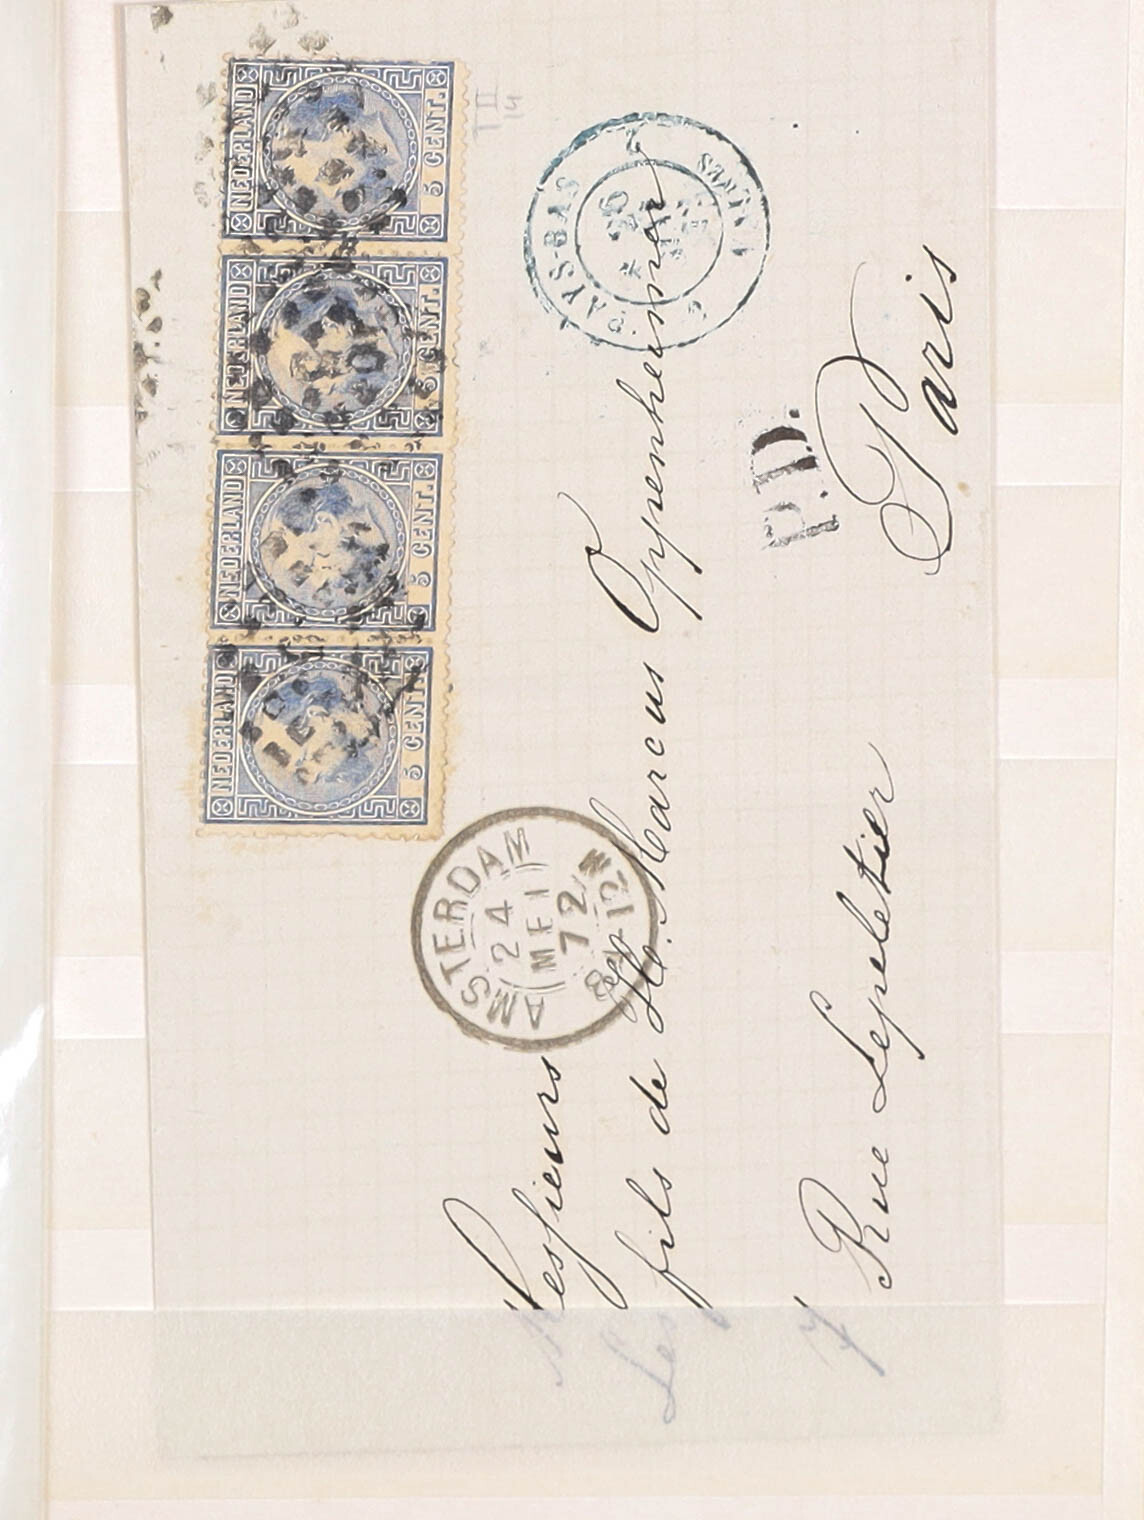 NEDERLAND
5 CENT.
NEDERLAND
5 CENT.
NEDERLAND
5 CENT.
NEDERLAND
5 CENT.
AMSTERDAM
24
MEI
72
8M-12M
PAYS-BAS
2 VALnes 2
P.D.
Messieurs
Les fils de H. Marcus Oppenheimer
7 Rue Lepeletier
Paris